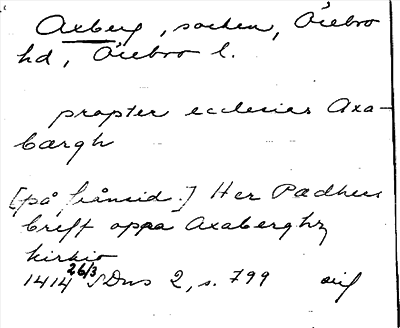 Axberg, socken, Örebro
hd, Örebro l.
propter ecclesias Axa-
bærgh
[på frånsid.] Her Pædhers
breff oppa Axaberghz
kirkio
1414 26/3 SDns 2, s. 799